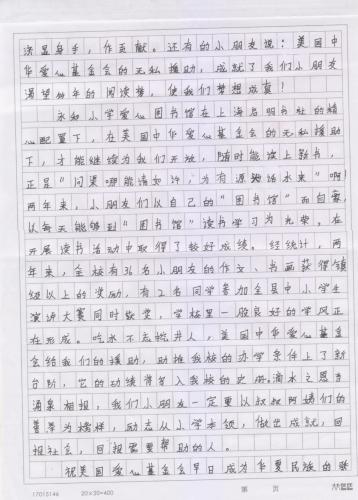 济显身手，作贡献。还有的小朋友说：美国中
华爱心基金会的无私援助，成就了我们小朋友
渴望幼年的阅读梦，使我们梦想成真！
永和小学爱心图书馆在上海启明书社的精
心配置下，在美国中华爱心基金会的无私援助
下，才能继续为我们开放，随时能读上新书，
正是“问渠哪能清如许，为有源头活水来”啊！
两年来，小朋友们从自己的“图书馆”而自豪，
以每天能够到“图书馆”读书学习为光荣。在
开展读书活动中取得了较好成绩。经统计，两
年来，全校有36名小朋友的作文、书画获得镇
级以上的奖励，有2名同学参加全县中小学生
演讲大赛同时获奖，学校里一股良好的学风正
在形成。吃水不忘挖井人，美国中华爱心基金
会给我们的援助，助推我校的办学条件上了新
台阶，它的功绩将载入我校的史册。滴水之恩当
涌泉相报，我们小朋友一定要以叔叔阿姨们的
善举为榜样，励志从小学本领，做出成就，回
报社会，回报需要帮助的人。
祝美国爱心基金会早日成为华夏民族的骄
17015146 20×20=400 第 页